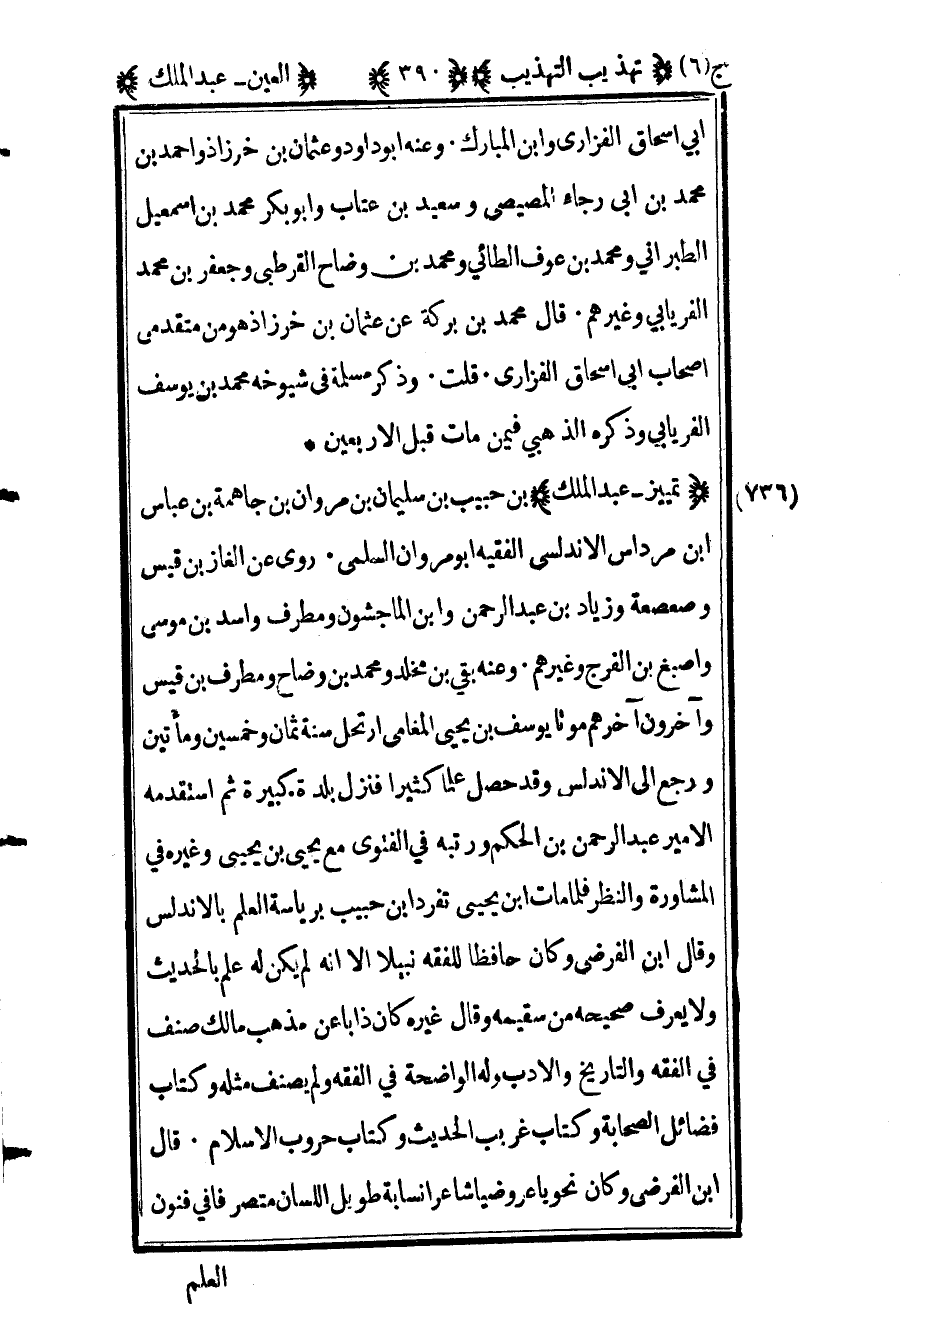 ج(٦) ﴿ تهذيب التهذيب ﴾ ﴿ ٣٩٠ ﴾ ﴿ العين ـ عبدالملك ﴾
ابي اسحاق الفزارى وابن المبارك ٠ وعنه ابو داود وعثمان بن خرزاذ واحمد بن
محمد بن ابى رجاء المصيصى و سعيد بن عتاب وابو بكر محمد بن اسمعيل
الطبراني ومحمد بن عوف الطائي ومحمد بن وضاح القرطبى وجعفر بن محمد
الفريابي وغيرهم ٠ قال محمد بن بركة عن عثمان بن خرزاذ هو من متقدمى
اصحاب ابى اسحاق الفزارى ٠ قلت ٠ وذكر مسلمة فى شيوخه محمد بن يوسف
الفريابي وذكره الذهبي فيمن مات قبل الاربعين *
﴿ تمييز ـ عبدالملك ﴾ بن حبيب بن سليمان بن مروان بن جاهمة بن عباس (٧٣٦)
ابن مرداس الاندلسى الفقيه ابو مروان السلمى ٠ روى عن الغاز بن قيس
وصعصعة وزياد بن عبدالرحمن وابن الماجشون ومطرف واسد بن موسى
واصبغ بن الفرج وغيرهم ٠ وعنه بقي بن مخلد ومحمد بن وضاح ومطرف بن قيس
وآخرون آخرهم موتا يوسف بن يحيى المغامى ارتحل سنة ثمان وخمسين ومأتين
و رجع الى الاندلس وقد حصل علما كثيرا فنزل بلدة كبيرة ثم استقدمه
الامير عبدالرحمن بن الحكم ورتبه في الفتوى مع يحيى بن يحيى وغيره في
المشاورة والنظر فلما مات ابن يحيى تفرد ابن حبيب برياسة العلم بالاندلس
وقال ابن الفرضى وكان حافظا للفقه نبيلا الا انه لم يكن له علم بالحديث
ولا يعرف صحيحه من سقيمه وقال غيره كان ذابا عن مذهب مالك صنف
في الفقه والتاريخ والادب وله الواضحة في الفقه ولم يصنف مثله وكتاب
فضائل الصحابة وكتاب غريب الحديث وكتاب حروب الاسلام ٠ قال
ابن الفرضى وكان نحويا عروضيا شاعرا نسابة طويل اللسان متصرفا في فنون
العلم